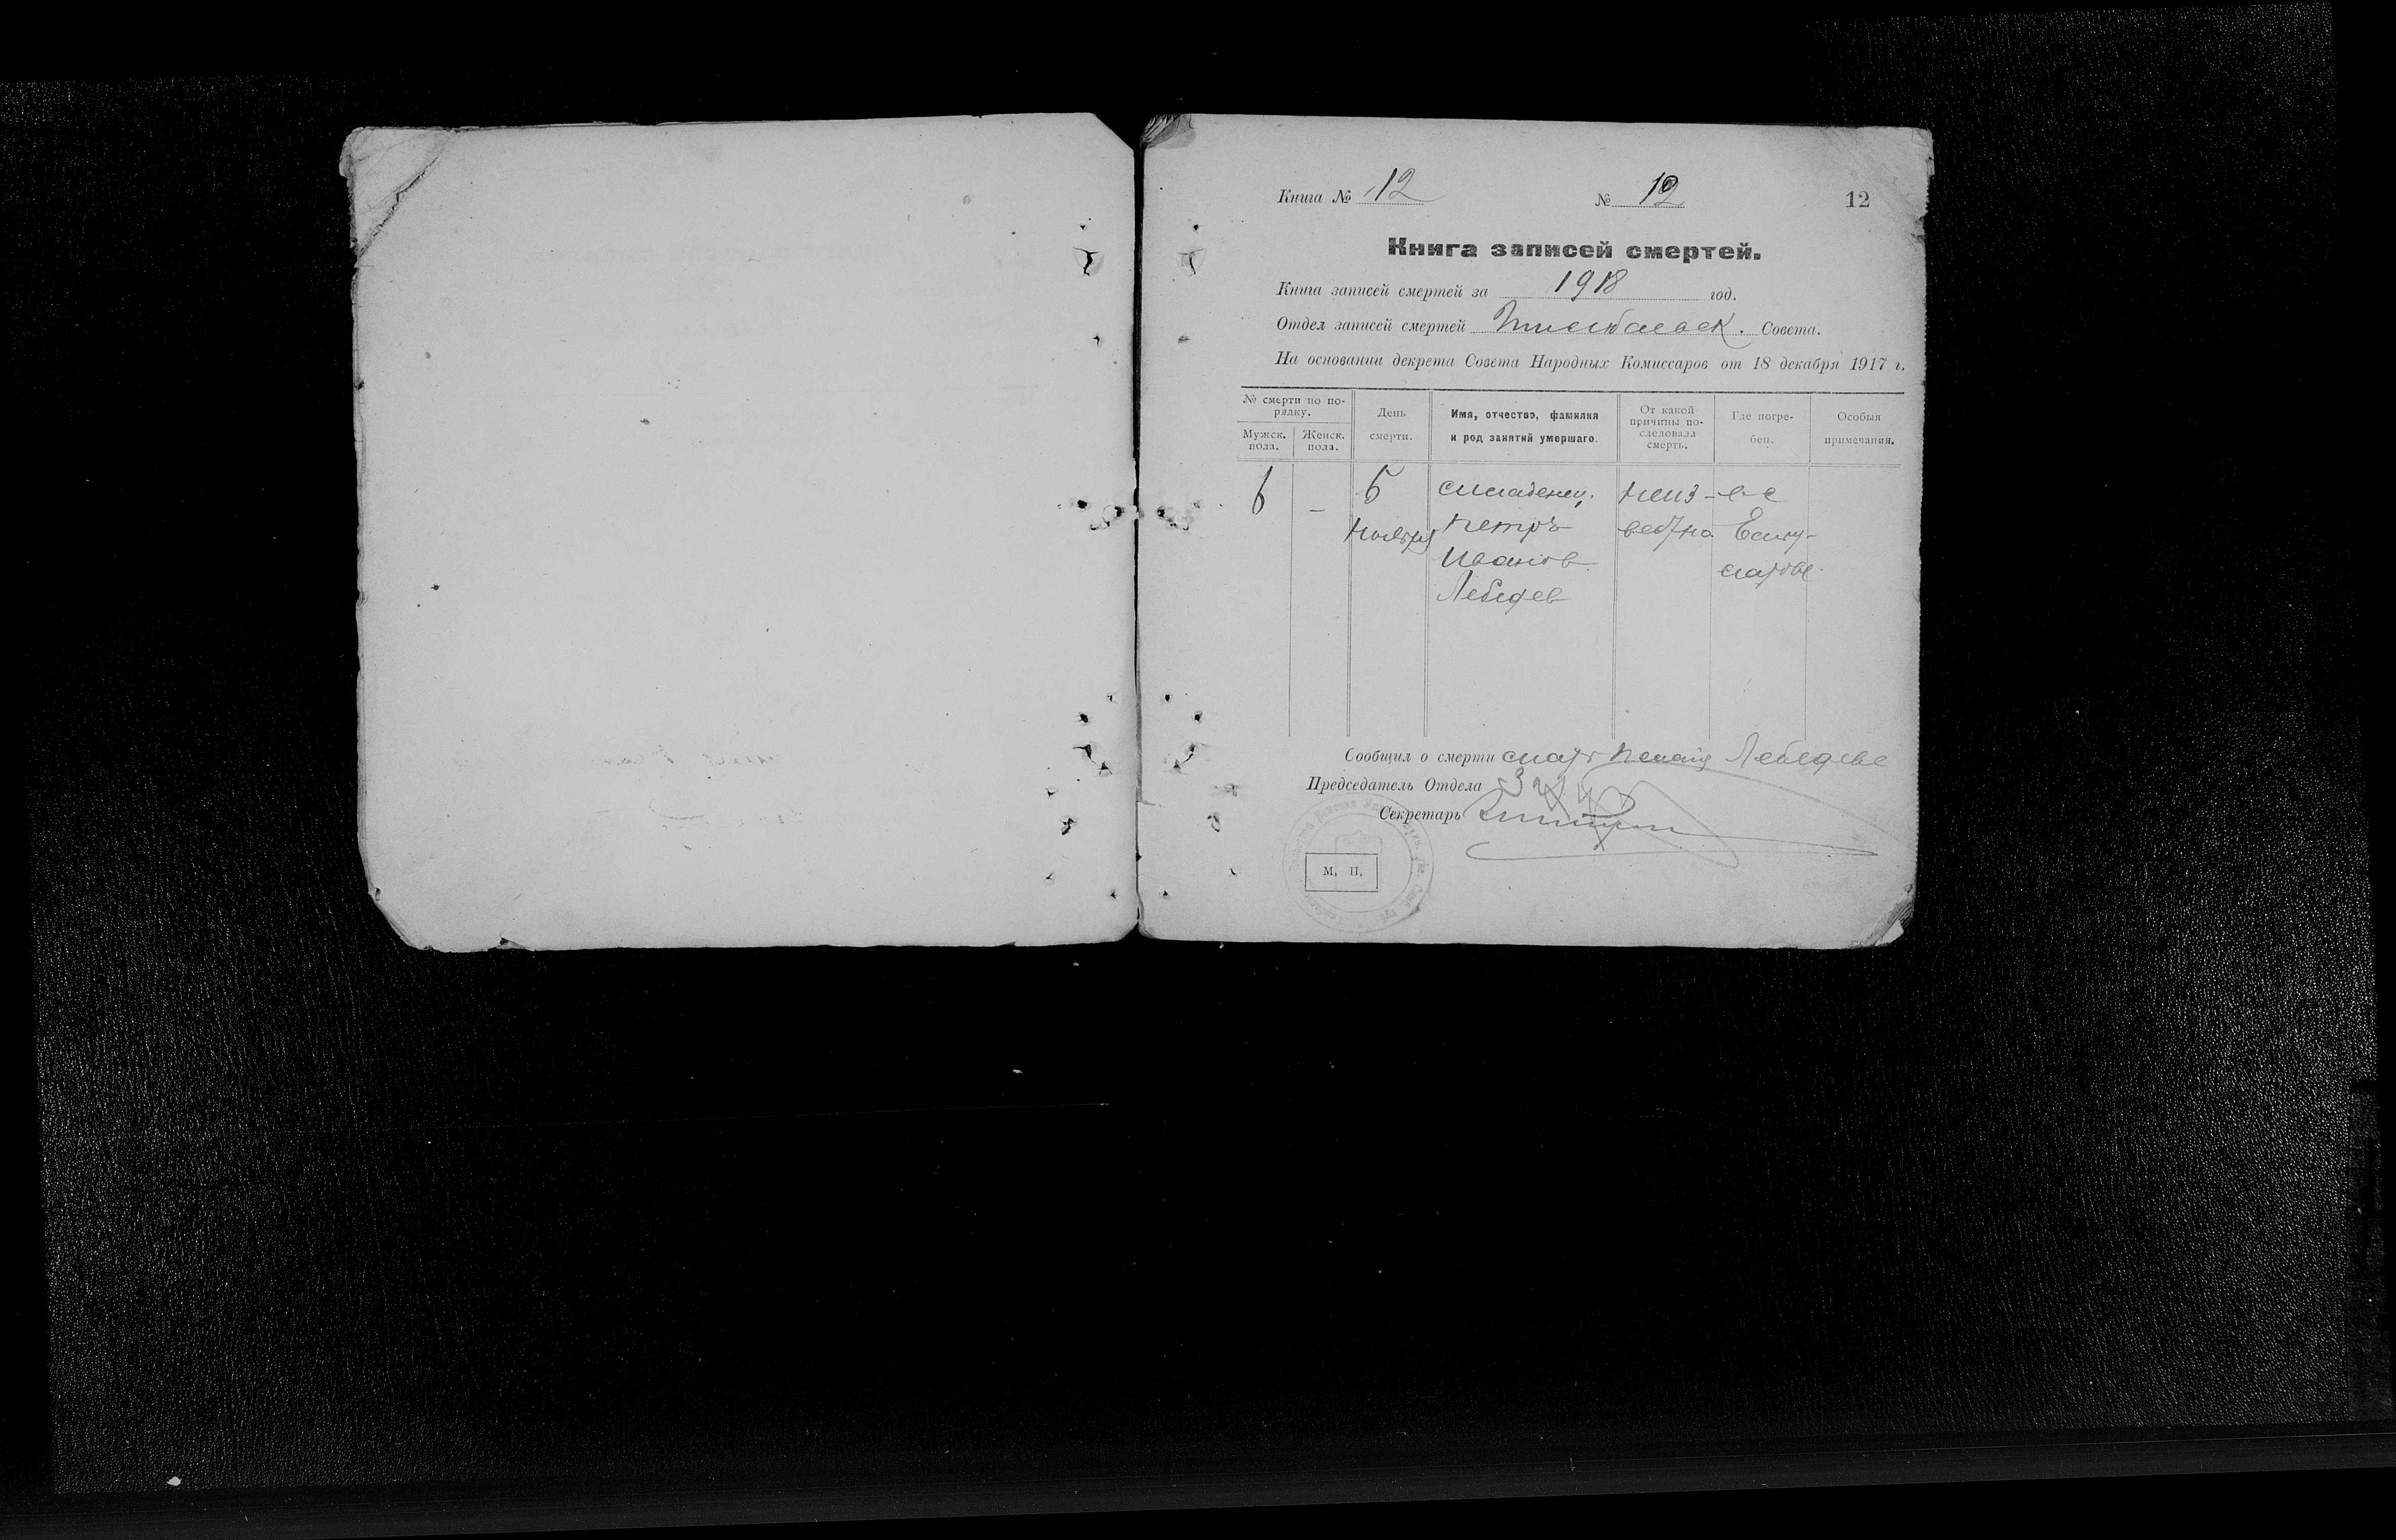 Книга № 12 № 12 12
Книга записей смертей.
Книга записей смертей за 1918 год.
Отдел записей смертей Совета.
На основании декрета Совета Народных Комиссаров от 18 декабря 1917 г.
№ смерти по по-
рядку.
Мужск.
пола.
Женск.
пола.
День
смерти.
Имя, отчество, фамилия
и род занятий умершаго.
От какой
причины по-
следовала
смерть.
Где погре-
бен.
Особыя
примечания.
6 - 5
Ноября
младенец
Петръ
Иванов
Лебедев
неиз-
вестно
в-с
Сообщил о смерти мать Лебедева
Председатель Отдела
Секретарь
М. П.